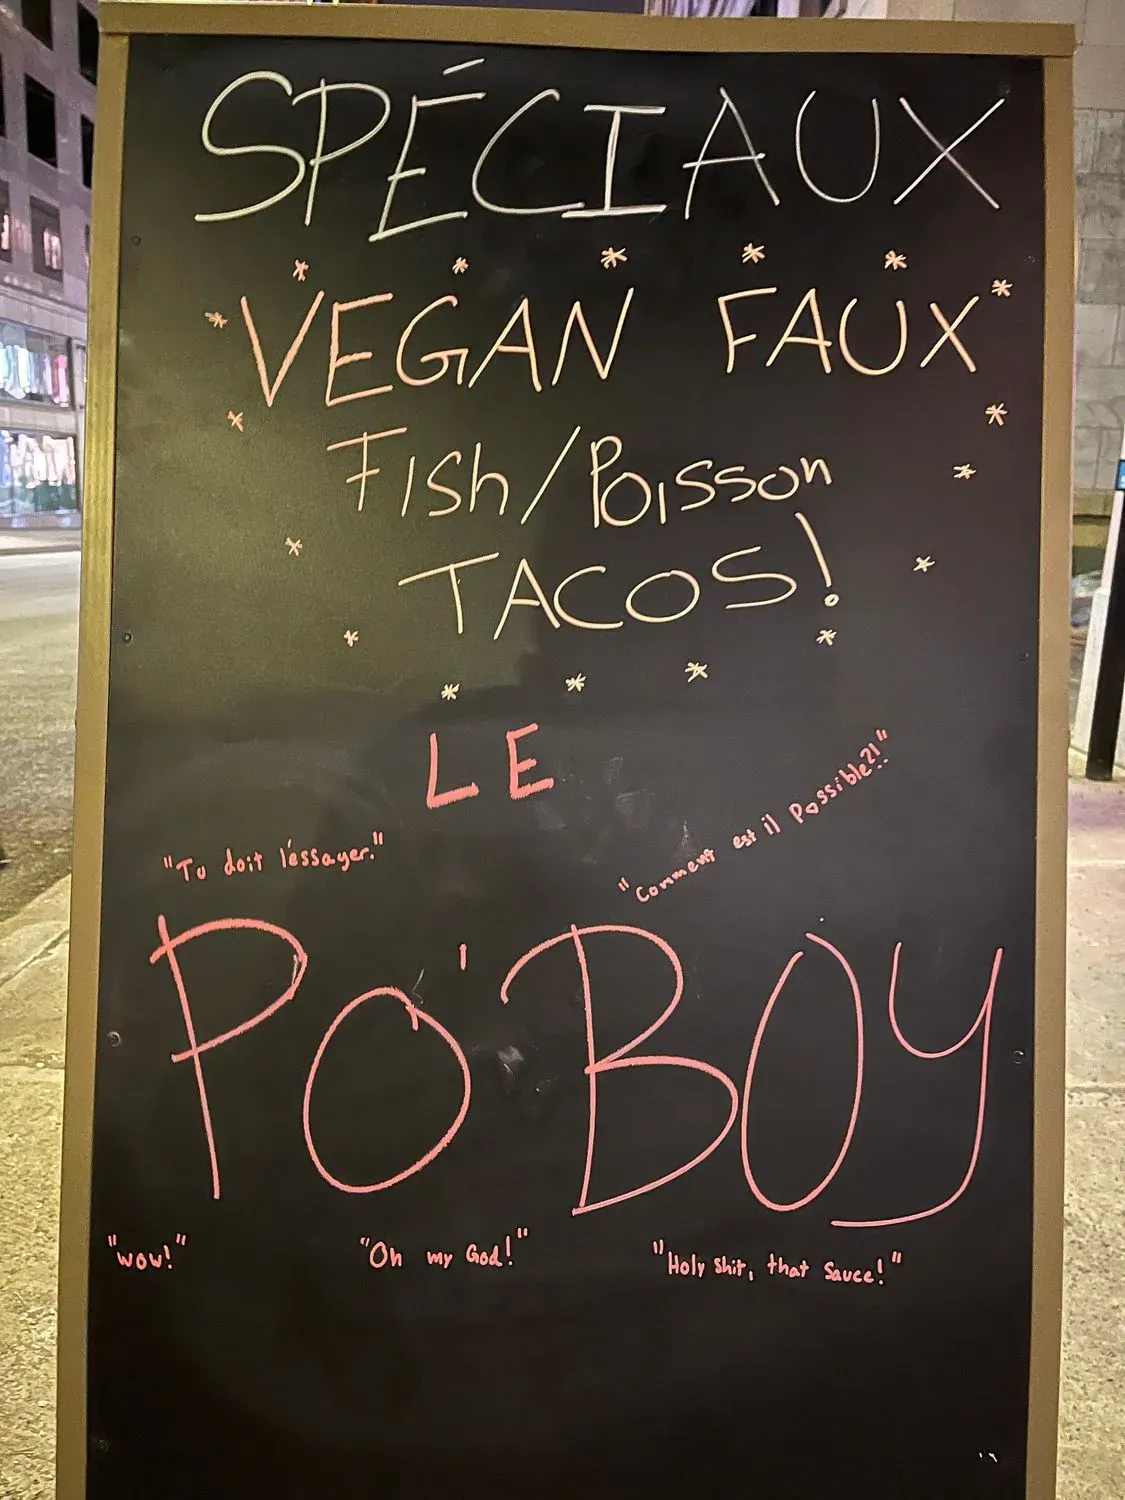 SPÉCIAUX
VEGAN FAUX
Fish/Poisson
TACOS!
LE
"Tu doit l'essayer."
"Comment est il Possible?!"
PO'BOY
"Wow!"
"Oh my God!"
"Holy shit, that Sauce!"